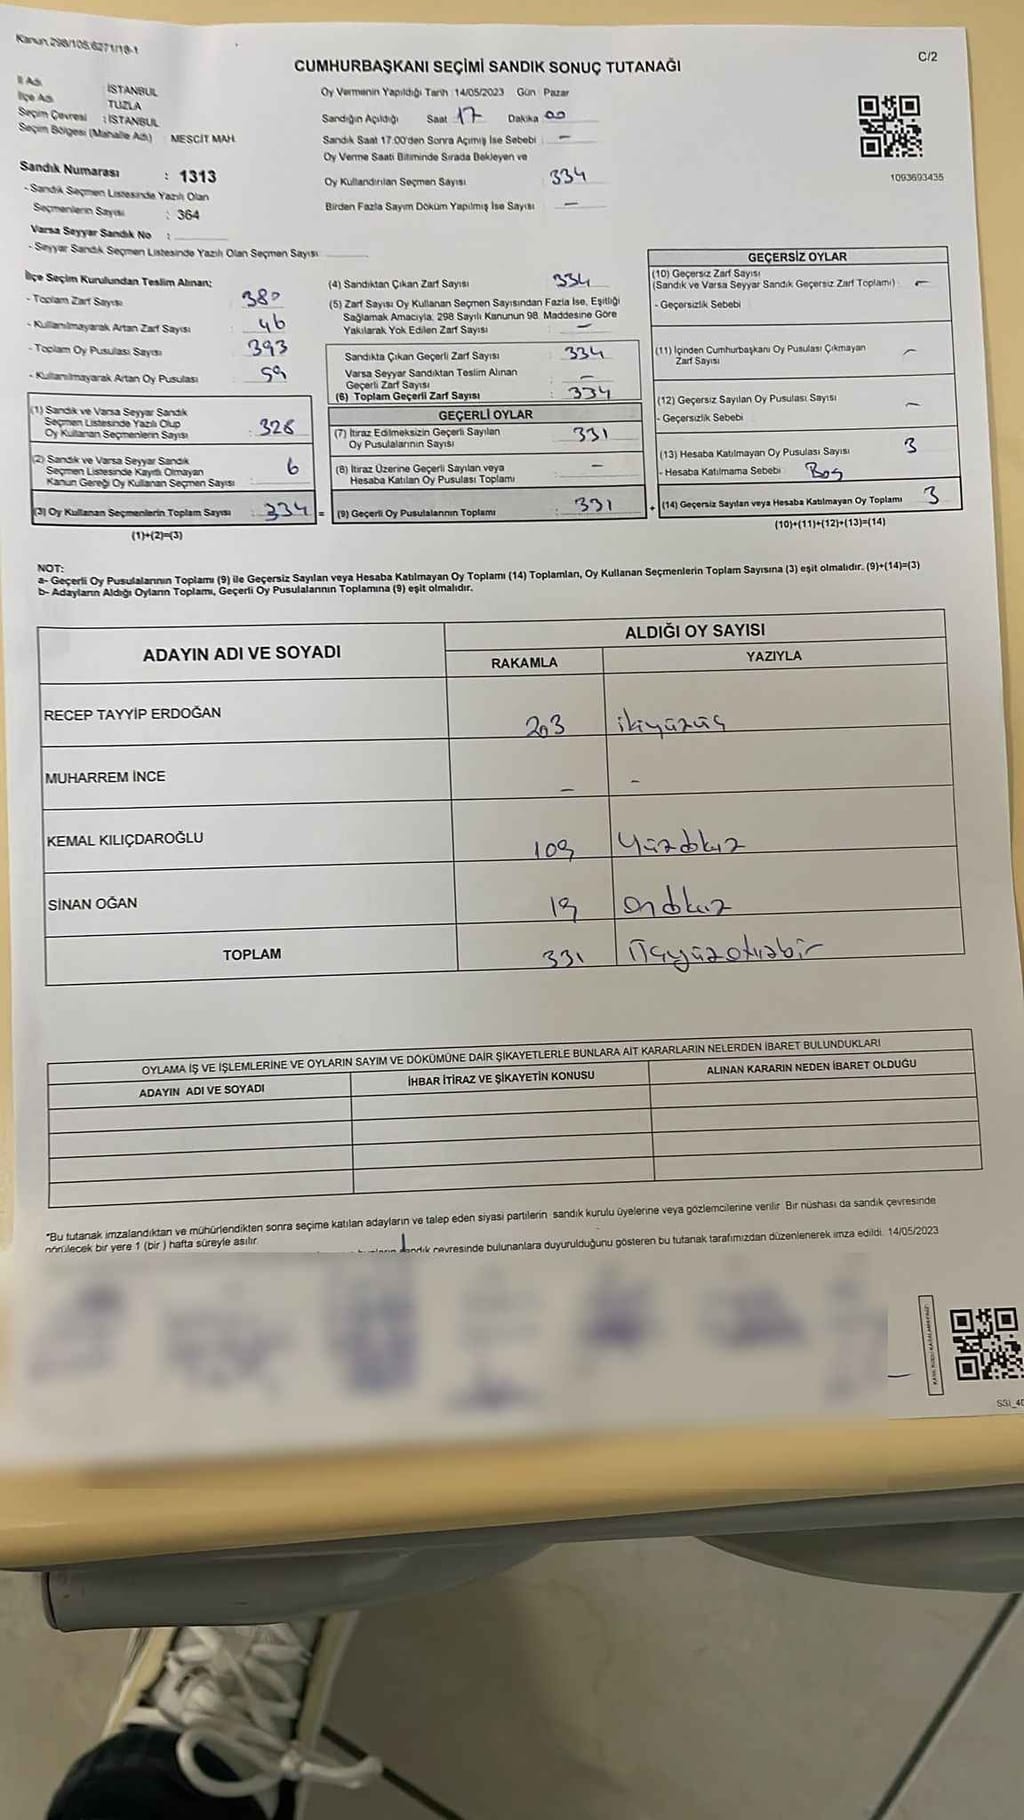 Kanun.298/105.6271/18-1
C/2
CUMHURBAŞKANI SEÇİMİ SANDIK SONUÇ TUTANAĞI
İl Adı İSTANBUL
İlçe Adı TUZLA
Seçim Çevresi : İSTANBUL
Seçim Bölgesi (Mahalle Adı) MESCİT MAH
Sandık Numarası : 1313
- Sandık Seçmen Listesinde Yazılı Olan
Seçmenlerin Sayısı : 364
Varsa Seyyar Sandık No :
- Seyyar Sandık Seçmen Listesinde Yazılı Olan Seçmen Sayısı
Oy Vermenin Yapıldığı Tarih : 14/05/2023 Gün : Pazar
Sandığın Açıldığı Saat 17 Dakika 00
Sandık Saat 17:00'den Sonra Açımış İse Sebebi : —
Oy Verme Saati Bitiminde Sırada Bekleyen ve
Oy Kullandırılan Seçmen Sayısı 334
Birden Fazla Sayım Döküm Yapılmış İse Sayısı : —
1093693435
İlçe Seçim Kurulundan Teslim Alınan;
- Toplam Zarf Sayısı : 380
- Kullanılmayarak Artan Zarf Sayısı : 46
- Toplam Oy Pusulası Sayısı : 393
- Kullanılmayarak Artan Oy Pusulası : 59
(1) Sandık ve Varsa Seyyar Sandık
Seçmen Listesinde Yazılı Olup
Oy Kullanan Seçmenlerin Sayısı : 328
(2) Sandık ve Varsa Seyyar Sandık
Seçmen Listesinde Kayıtlı Olmayan
Kanun Gereği Oy Kullanan Seçmen Sayısı : 6
(3) Oy Kullanan Seçmenlerin Toplam Sayısı : 334 =
(1)+(2)=(3)
(4) Sandıktan Çıkan Zarf Sayısı : 334
(5) Zarf Sayısı Oy Kullanan Seçmen Sayısından Fazla İse, Eşitliği
Sağlamak Amacıyla; 298 Sayılı Kanunun 98. Maddesine Göre
Yakılarak Yok Edilen Zarf Sayısı : —
Sandıkta Çıkan Geçerli Zarf Sayısı : 334
Varsa Seyyar Sandıktan Teslim Alınan
Geçerli Zarf Sayısı : —
(6) Toplam Geçerli Zarf Sayısı : 334
GEÇERLİ OYLAR
(7) İtiraz Edilmeksizin Geçerli Sayılan
Oy Pusulalarının Sayısı : 331
(8) İtiraz Üzerine Geçerli Sayılan veya
Hesaba Katılan Oy Pusulası Toplamı : —
(9) Geçerli Oy Pusulalarının Toplamı : 331 +
GEÇERSİZ OYLAR
(10) Geçersiz Zarf Sayısı
(Sandık ve Varsa Seyyar Sandık Geçersiz Zarf Toplamı) : —
- Geçersizlik Sebebi
(11) İçinden Cumhurbaşkanı Oy Pusulası Çıkmayan
Zarf Sayısı —
(12) Geçersiz Sayılan Oy Pusulası Sayısı —
- Geçersizlik Sebebi
(13) Hesaba Katılmayan Oy Pusulası Sayısı 3
- Hesaba Katılmama Sebebi Boş
(14) Geçersiz Sayılan veya Hesaba Katılmayan Oy Toplamı 3
(10)+(11)+(12)+(13)=(14)
NOT:
a- Geçerli Oy Pusulalarının Toplamı (9) ile Geçersiz Sayılan veya Hesaba Katılmayan Oy Toplamı (14) Toplamları, Oy Kullanan Seçmenlerin Toplam Sayısına (3) eşit olmalıdır. (9)+(14)=(3)
b- Adayların Aldığı Oyların Toplamı, Geçerli Oy Pusulalarının Toplamına (9) eşit olmalıdır.
ADAYIN ADI VE SOYADI ALDIĞI OY SAYISI
RAKAMLA YAZIYLA
RECEP TAYYİP ERDOĞAN 203 ikiyüzüç
MUHARREM İNCE — -
KEMAL KILIÇDAROĞLU 109 Yüzdokuz
SİNAN OĞAN 19 ondokuz
TOPLAM 331 Üçyüzotuzbir
OYLAMA İŞ VE İŞLEMLERİNE VE OYLARIN SAYIM VE DÖKÜMÜNE DAİR ŞİKAYETLERLE BUNLARA AİT KARARLARIN NELERDEN İBARET BULUNDUKLARI
ADAYIN ADI VE SOYADI İHBAR İTİRAZ VE ŞİKAYETİN KONUSU ALINAN KARARIN NEDEN İBARET OLDUĞU
*Bu tutanak imzalandıktan ve mühürlendikten sonra seçime katılan adayların ve talep eden siyasi partilerin sandık kurulu üyelerine veya gözlemcilerine verilir. Bir nüshası da sandık çevresinde
görülecek bir yere 1 (bir) hafta süreyle asılır.
sandık çevresinde bulunanlara duyurulduğunu gösteren bu tutanak tarafımızdan düzenlenerek imza edildi. 14/05/2023